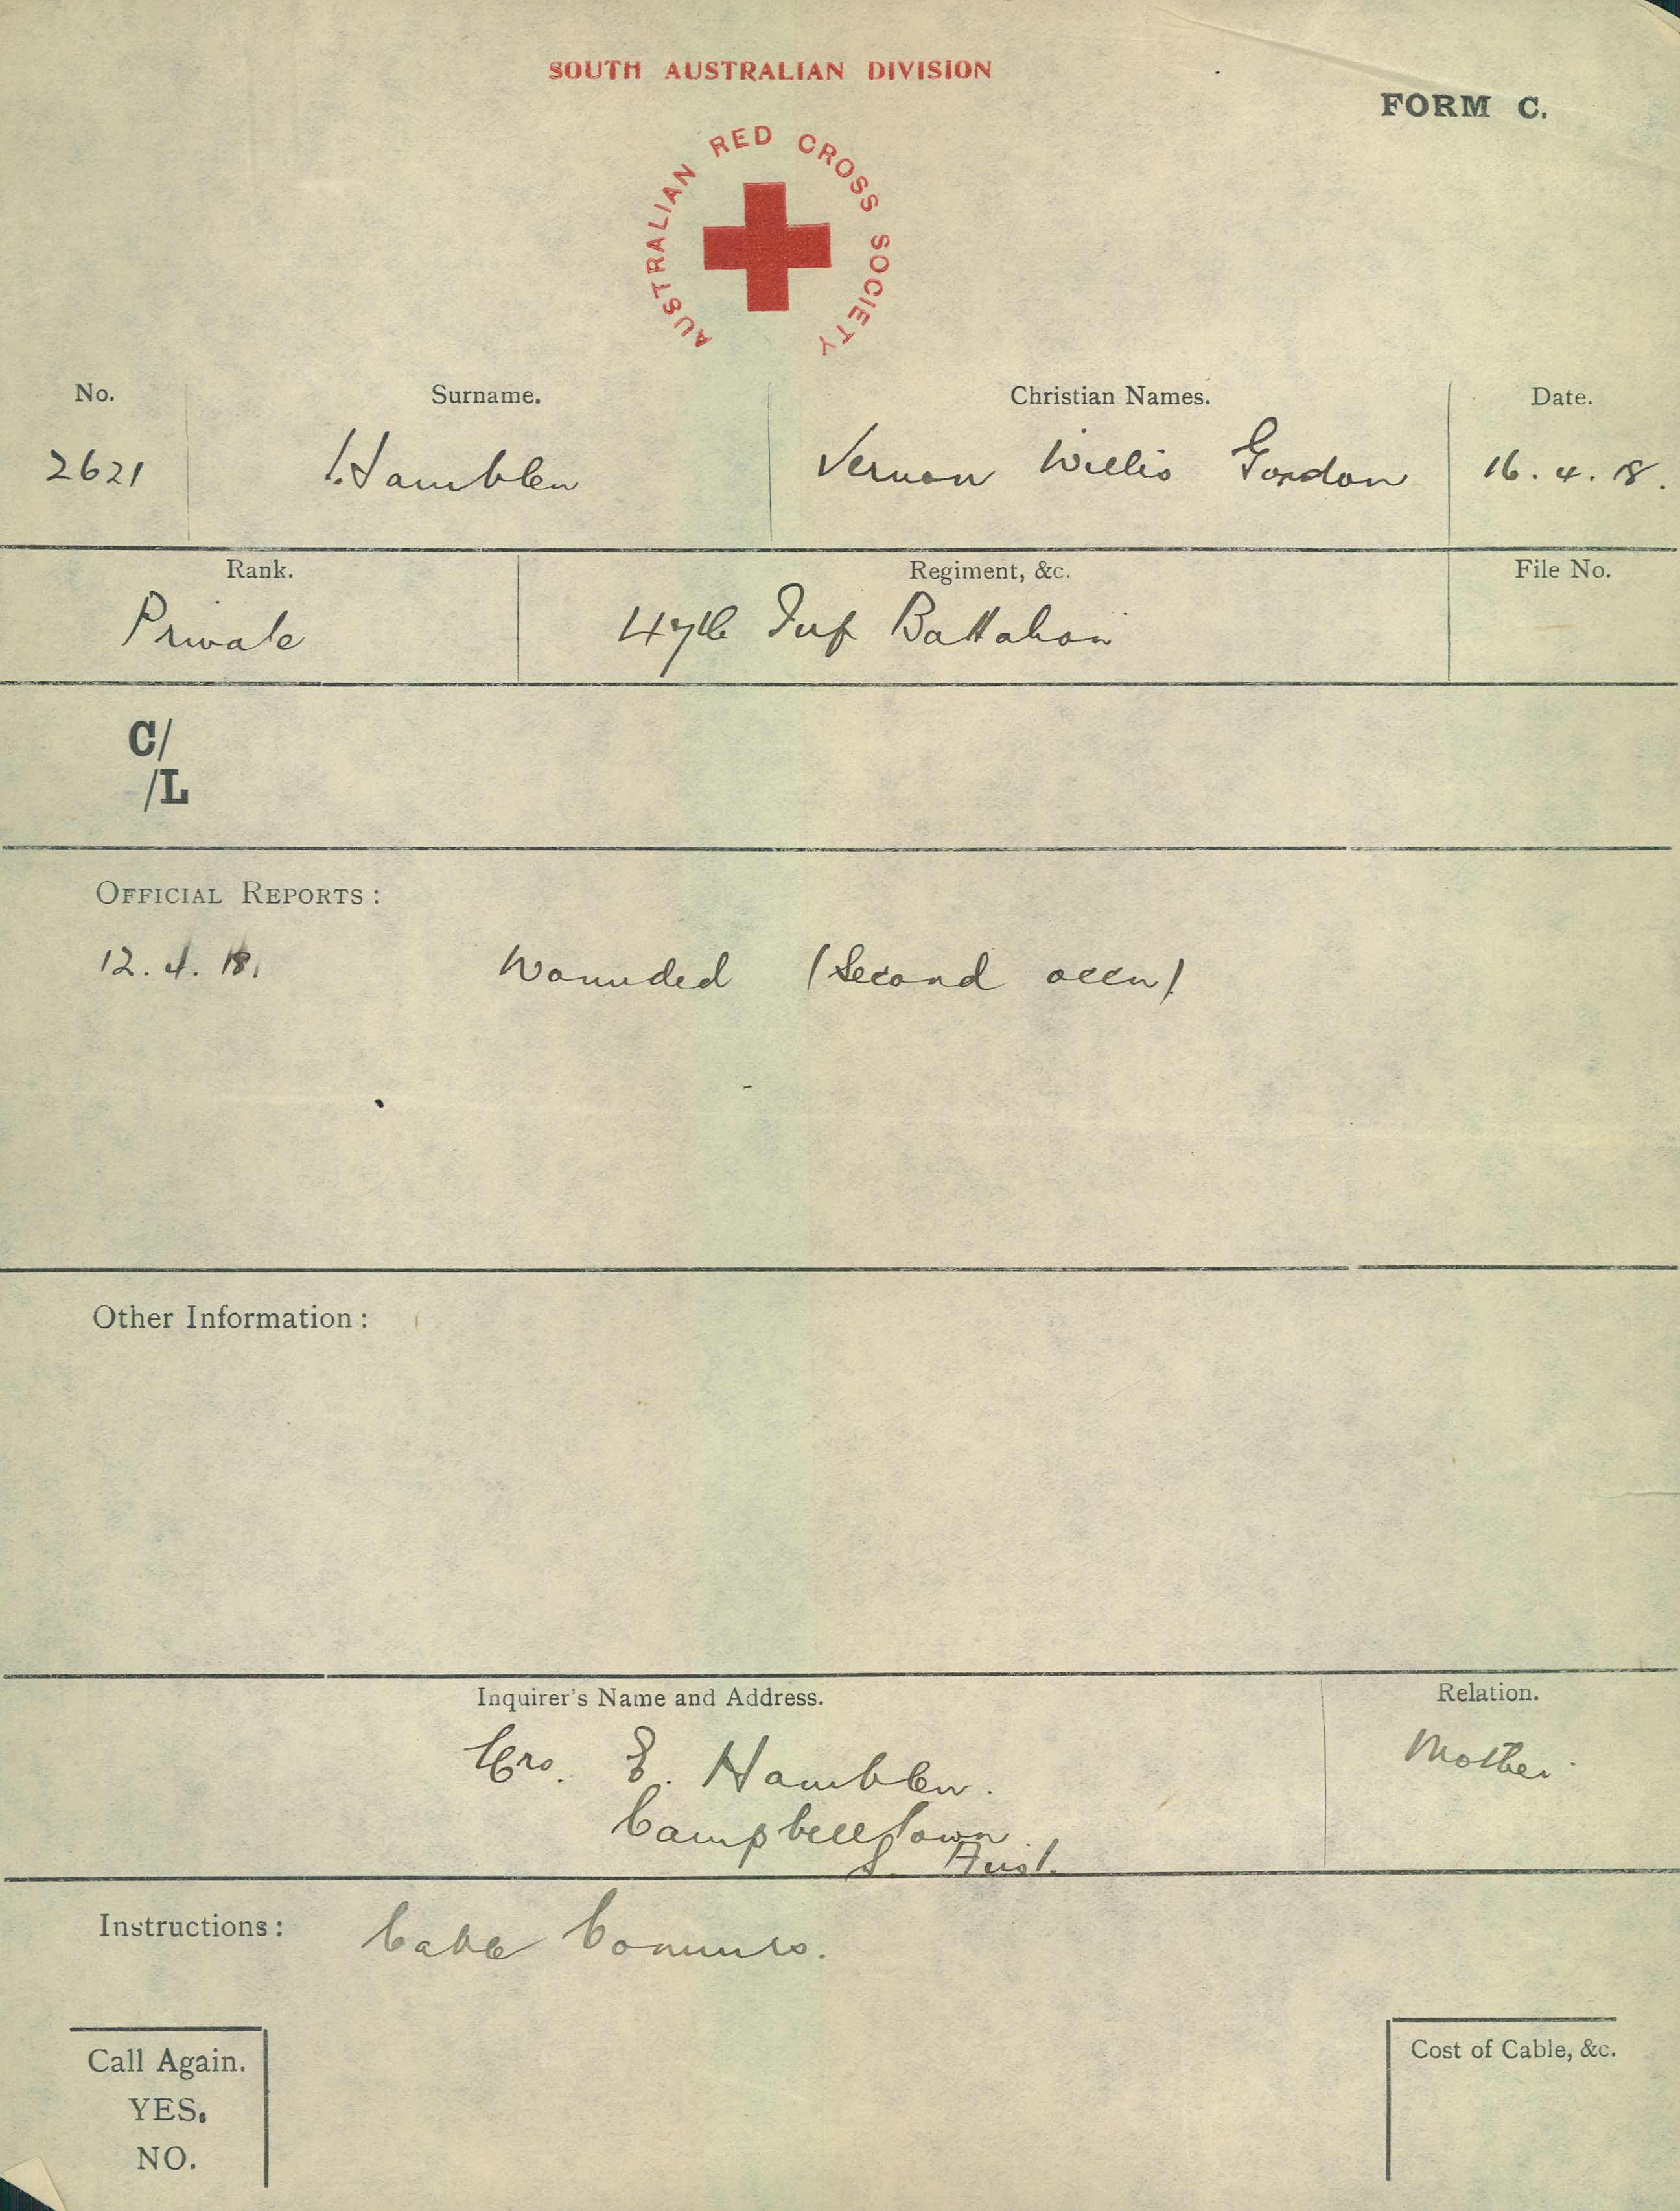 SOUTH AUSTRALIAN DIVISION
FORM C.
AUSTRALIAN RED CROSS SOCIETY
No. Surname. Christian Names. Date.
2621 Hamblen Vernon Willis Gordon 16.4.18.
Rank. Regiment, &c. File No.
Private 47th Inf Battalion
C/
/L
OFFICIAL REPORTS:
12.4.18. Wounded (Second occn)
Other Information:
Inquirer's Name and Address. Relation.
Mrs. E. Hamblen. Mother.
Campbelltown.
S. Aust.
Instructions: Cable Commrs.
Call Again.
YES.
NO.
Cost of Cable, &c.